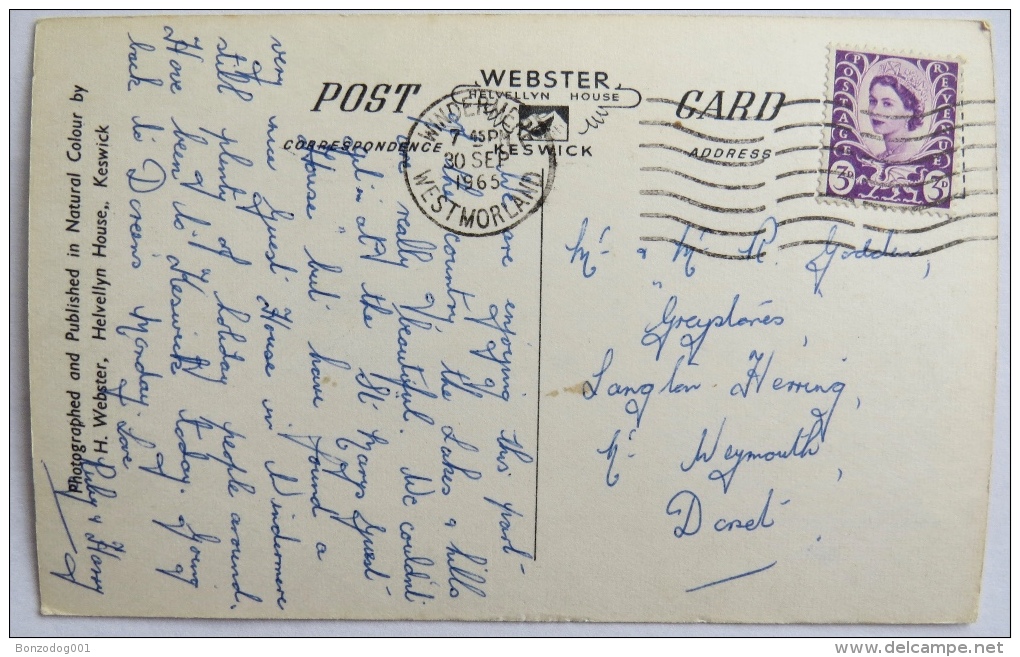 POST CARD
WEBSTER
HELVELLYN HOUSE
KESWICK
CORRESPONDENCE
ADDRESS
WINDERMERE
7 45 PM
30 SEP
1965
WESTMORLAND
POSTAGE REVENUE
3D 3D
We are enjoying this part
of the country the Lakes & hills
are really beautiful. We couldn't
get in at the St Marys Guest
House" but have found a
very nice Guest House in Windermere
still plenty of holiday people around.
Have been to Keswick today. Going
back to Doreens Monday. Love
Ruby & Harry
Mr & Mrs R. Godden,
"Greystones"
Langton Herring,
Nr Weymouth,
Dorset
Photographed and Published in Natural Colour by
H. Webster, Helvellyn House,, Keswick
Bonzodog001
delcampe.net